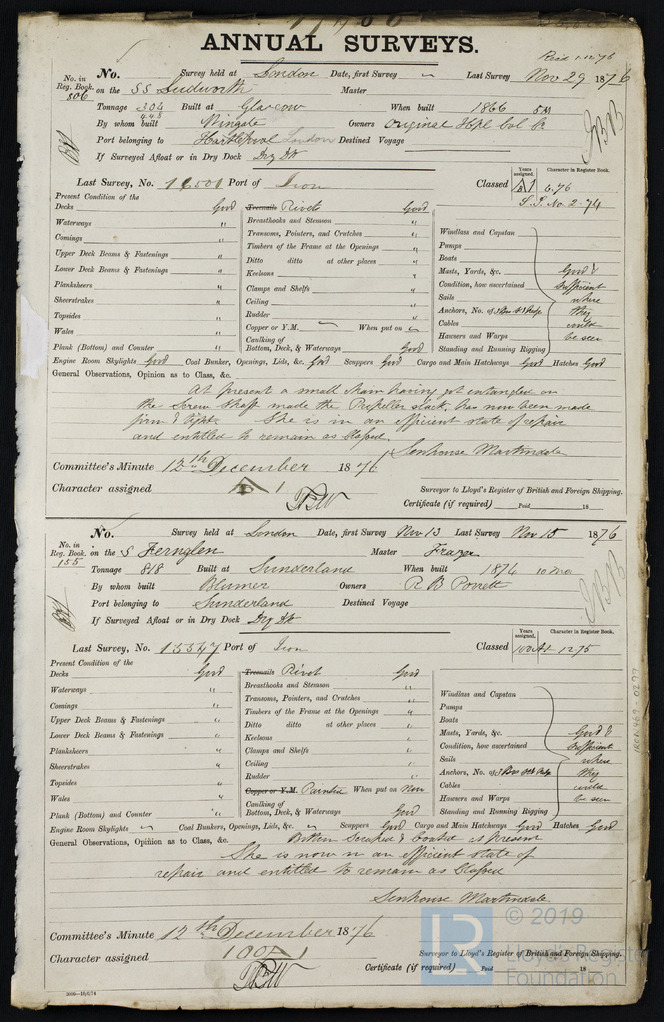 ANNUAL SURVEYS.
Recd 1.12.76
No. in Reg. Book. 506
No. Survey held at London Date, first Survey " Last Survey Nov 29 1876
on the SS Ludworth Master
Tonnage 304 Built at Glascow When built 1866 5 Mo
448
By whom built Wingate Owners Original Hpl Col Co
Port belonging to Hartlepool London Destined Voyage
If Surveyed Afloat or in Dry Dock Dry Dk
Last Survey, No. Port of Iron Classed A 1 6.76
Years assigned. Character in Register Book.
S.S. No. 2-74
Present Condition of the
Decks Good
Waterways "
Comings "
Upper Deck Beams & Fastenings "
Lower Deck Beams & Fastenings "
Planksheers "
Sheerstrakes "
Topsides "
Wales "
Plank (Bottom) and Counter "
Treenails Rivets Good
Breasthooks and Stemson "
Transoms, Pointers, and Crutches "
Timbers of the Frame at the Openings "
Ditto ditto at other places "
Keelsons "
Clamps and Shelfs "
Ceiling "
Rudder "
Copper or Y.M. When put on
Caulking of Bottom, Deck, & Waterways Good
Windlass and Capstan
Pumps
Boats
Masts, Yards, &c. Good &
Condition, how ascertained Sufficient
Sails where
Anchors, No. of 3 Bow St & Kedge they
Cables could
Hawsers and Warps be seen
Standing and Running Rigging
Engine Room Skylights Good Coal Bunker, Openings, Lids, &c. Good Scuppers Good Cargo and Main Hatchways Good Hatches Good
General Observations, Opinion as to Class, &c.
At present a small chain having got entangled on
the Screw Shaft made the Propeller slack, has now been made
firm & tight. She is in an efficient state of repair
and entitled to remain as Classed.
Senhouse Martindale
Committee's Minute 12th December 1876
Character assigned A 1
Surveyor to Lloyd's Register of British and Foreign Shipping.
Certificate (if required) Paid 18
No. in Reg. Book. 155
No. Survey held at London Date, first Survey Nov 13 Last Survey Nov 15 1876
on the S Fernglen Master Frazer
Tonnage 818 Built at Sunderland When built 1874 10 mo
By whom built Blumer Owners R B Porrett
Port belonging to Sunderland Destined Voyage
If Surveyed Afloat or in Dry Dock Dry Dk
Last Survey, No. 15547 Port of Iron Classed 100 A1 12.75
Years assigned. Character in Register Book.
Present Condition of the
Decks Good
Waterways "
Comings "
Upper Deck Beams & Fastenings "
Lower Deck Beams & Fastenings "
Planksheers "
Sheerstrakes "
Topsides "
Wales "
Plank (Bottom) and Counter "
Treenails Rivet Good
Breasthooks and Stemson "
Transoms, Pointers, and Crutches "
Timbers of the Frame at the Openings "
Ditto ditto at other places "
Keelsons "
Clamps and Shelfs "
Ceiling "
Rudder "
Copper or Y.M. Painted When put on Now
Caulking of Bottom, Deck, & Waterways Good
Windlass and Capstan
Pumps
Boats
Masts, Yards, &c. Good &
Condition, how ascertained Sufficient
Sails where
Anchors, No. of 3 Bow St & Kedge they
Cables could
Hawsers and Warps be seen
Standing and Running Rigging
Engine Room Skylights " Coal Bunkers, Openings, Lids, &c. " Scuppers Good Cargo and Main Hatchways Good Hatches Good
General Observations, Opinion as to Class, &c. Bottom Scraped & Coated at present
She is now in an efficient state of
repair and entitled to remain as Classed
Senhouse Martindale
Committee's Minute 12th December 1876
Character assigned 100 A 1
Surveyor to Lloyd's Register of British and Foreign Shipping.
Certificate (if required) Paid 18
IRON 469-0297
LR © 2019
Lloyd's Register
Foundation